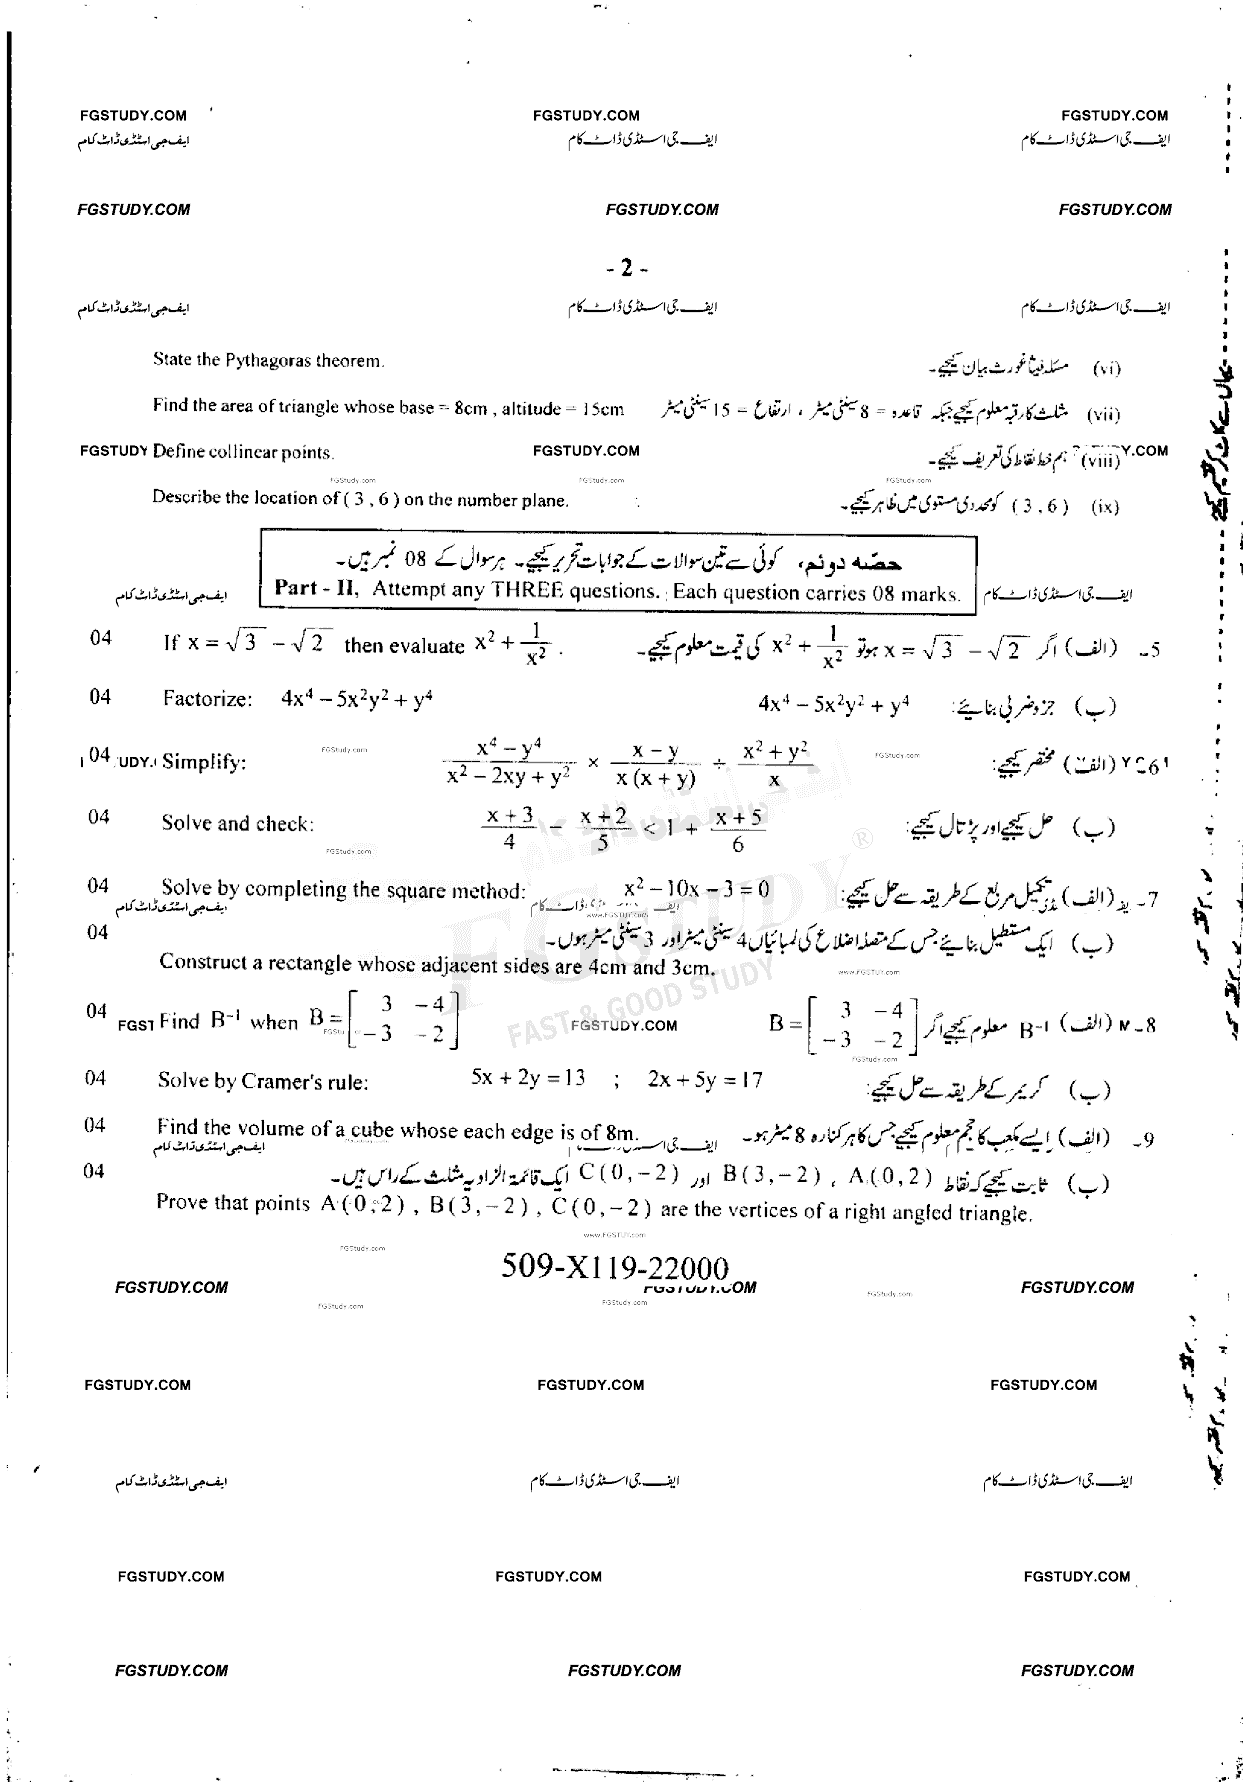 FGSTUDY.COM FGSTUDY.COM FGSTUDY.COM
ایف جی اسٹڈی ڈاٹ کام ایف جی اسٹڈی ڈاٹ کام ایف جی اسٹڈی ڈاٹ کام
FGSTUDY.COM FGSTUDY.COM FGSTUDY.COM
- 2 -
ایف جی اسٹڈی ڈاٹ کام ایف جی اسٹڈی ڈاٹ کام ایف جی اسٹڈی ڈاٹ کام
State the Pythagoras theorem. (vi) مسئلہ فیثاغورث بیان کیجیے۔
Find the area of triangle whose base = 8cm , altitude = 15cm (vii) مثلث کا رقبہ معلوم کیجیے جبکہ قاعدہ = 8 سینٹی میٹر ، ارتفاع = 15 سینٹی میٹر
FGSTUDY Define collinear points. FGSTUDY.COM (viii) ہم خط نقاط کی تعریف کیجیے۔ Y.COM
FGStudy.com FGStudy.com FGStudy.com
Describe the location of ( 3 , 6 ) on the number plane. (ix) ( 3 , 6 ) کو عددی مستوی میں ظاہر کیجیے۔
حصّہ دوئم، کوئی سے تین سوالات کے جوابات تحریر کیجیے۔ ہر سوال کے 08 نمبر ہیں۔
Part - II, Attempt any THREE questions. Each question carries 08 marks.
ایف جی اسٹڈی ڈاٹ کام ایف جی اسٹڈی ڈاٹ کام
04 If x = √3 − √2 then evaluate x² + 1/x² . 5۔ (الف) اگر x = √3 − √2 ہو تو x² + 1/x² کی قیمت معلوم کیجیے۔
04 Factorize: 4x⁴ − 5x²y² + y⁴ (ب) جزو ضربی بنائیے: 4x⁴ − 5x²y² + y⁴
04 UDY. Simplify: (x⁴ − y⁴)/(x² − 2xy + y²) × (x − y)/(x (x + y)) ÷ (x² + y²)/x 6 (الف) مختصر کیجیے:
FGStudy.com FGStudy.com
04 Solve and check: (x + 3)/4 − (x + 2)/5 < 1 + (x + 5)/6 (ب) حل کیجیے اور پڑتال کیجیے:
FGStudy.com
04 Solve by completing the square method: x² − 10x − 3 = 0 7۔ (الف) بذریعہ تکمیل مربع کے طریقہ سے حل کیجیے:
ایف جی اسٹڈی ڈاٹ کام
FGSTUDY ®
FAST & GOOD STUDY
04 (ب) ایک مستطیل بنائیے جس کے متصلہ اضلاع کی لمبائیاں 4 سینٹی میٹر اور 3 سینٹی میٹر ہوں۔
Construct a rectangle whose adjacent sides are 4cm and 3cm.
www.FGSTUDY.com
04 FGST Find B⁻¹ when B = [ 3 −4 ; −3 −2 ] FGSTUDY.COM 8۔ (الف) B⁻¹ معلوم کیجیے اگر B = [ 3 −4 ; −3 −2 ]
FGStudy.com
04 Solve by Cramer's rule: 5x + 2y = 13 ; 2x + 5y = 17 (ب) کریمر کے طریقہ سے حل کیجیے:
04 Find the volume of a cube whose each edge is of 8m. 9۔ (الف) ایسے مکعب کا حجم معلوم کیجیے جس کا ہر کنارہ 8 میٹر ہو۔
ایف جی اسٹڈی ڈاٹ کام
04 (ب) ثابت کیجیے کہ نقاط A ( 0 , 2 ) ، B ( 3 , − 2 ) اور C ( 0 , − 2 ) ایک قائمۃ الزاویہ مثلث کے راس ہیں۔
Prove that points A ( 0 , 2 ) , B ( 3 , − 2 ) , C ( 0 , − 2 ) are the vertices of a right angled triangle.
FGStudy.com www.FGSTUDY.com
509-X119-22000
FGSTUDY.COM FGSTUDY.COM FGSTUDY.COM
FGStudy.com FGStudy.com FGStudy.com
FGSTUDY.COM FGSTUDY.COM FGSTUDY.COM
ایف جی اسٹڈی ڈاٹ کام ایف جی اسٹڈی ڈاٹ کام ایف جی اسٹڈی ڈاٹ کام
FGSTUDY.COM FGSTUDY.COM FGSTUDY.COM
FGSTUDY.COM FGSTUDY.COM FGSTUDY.COM